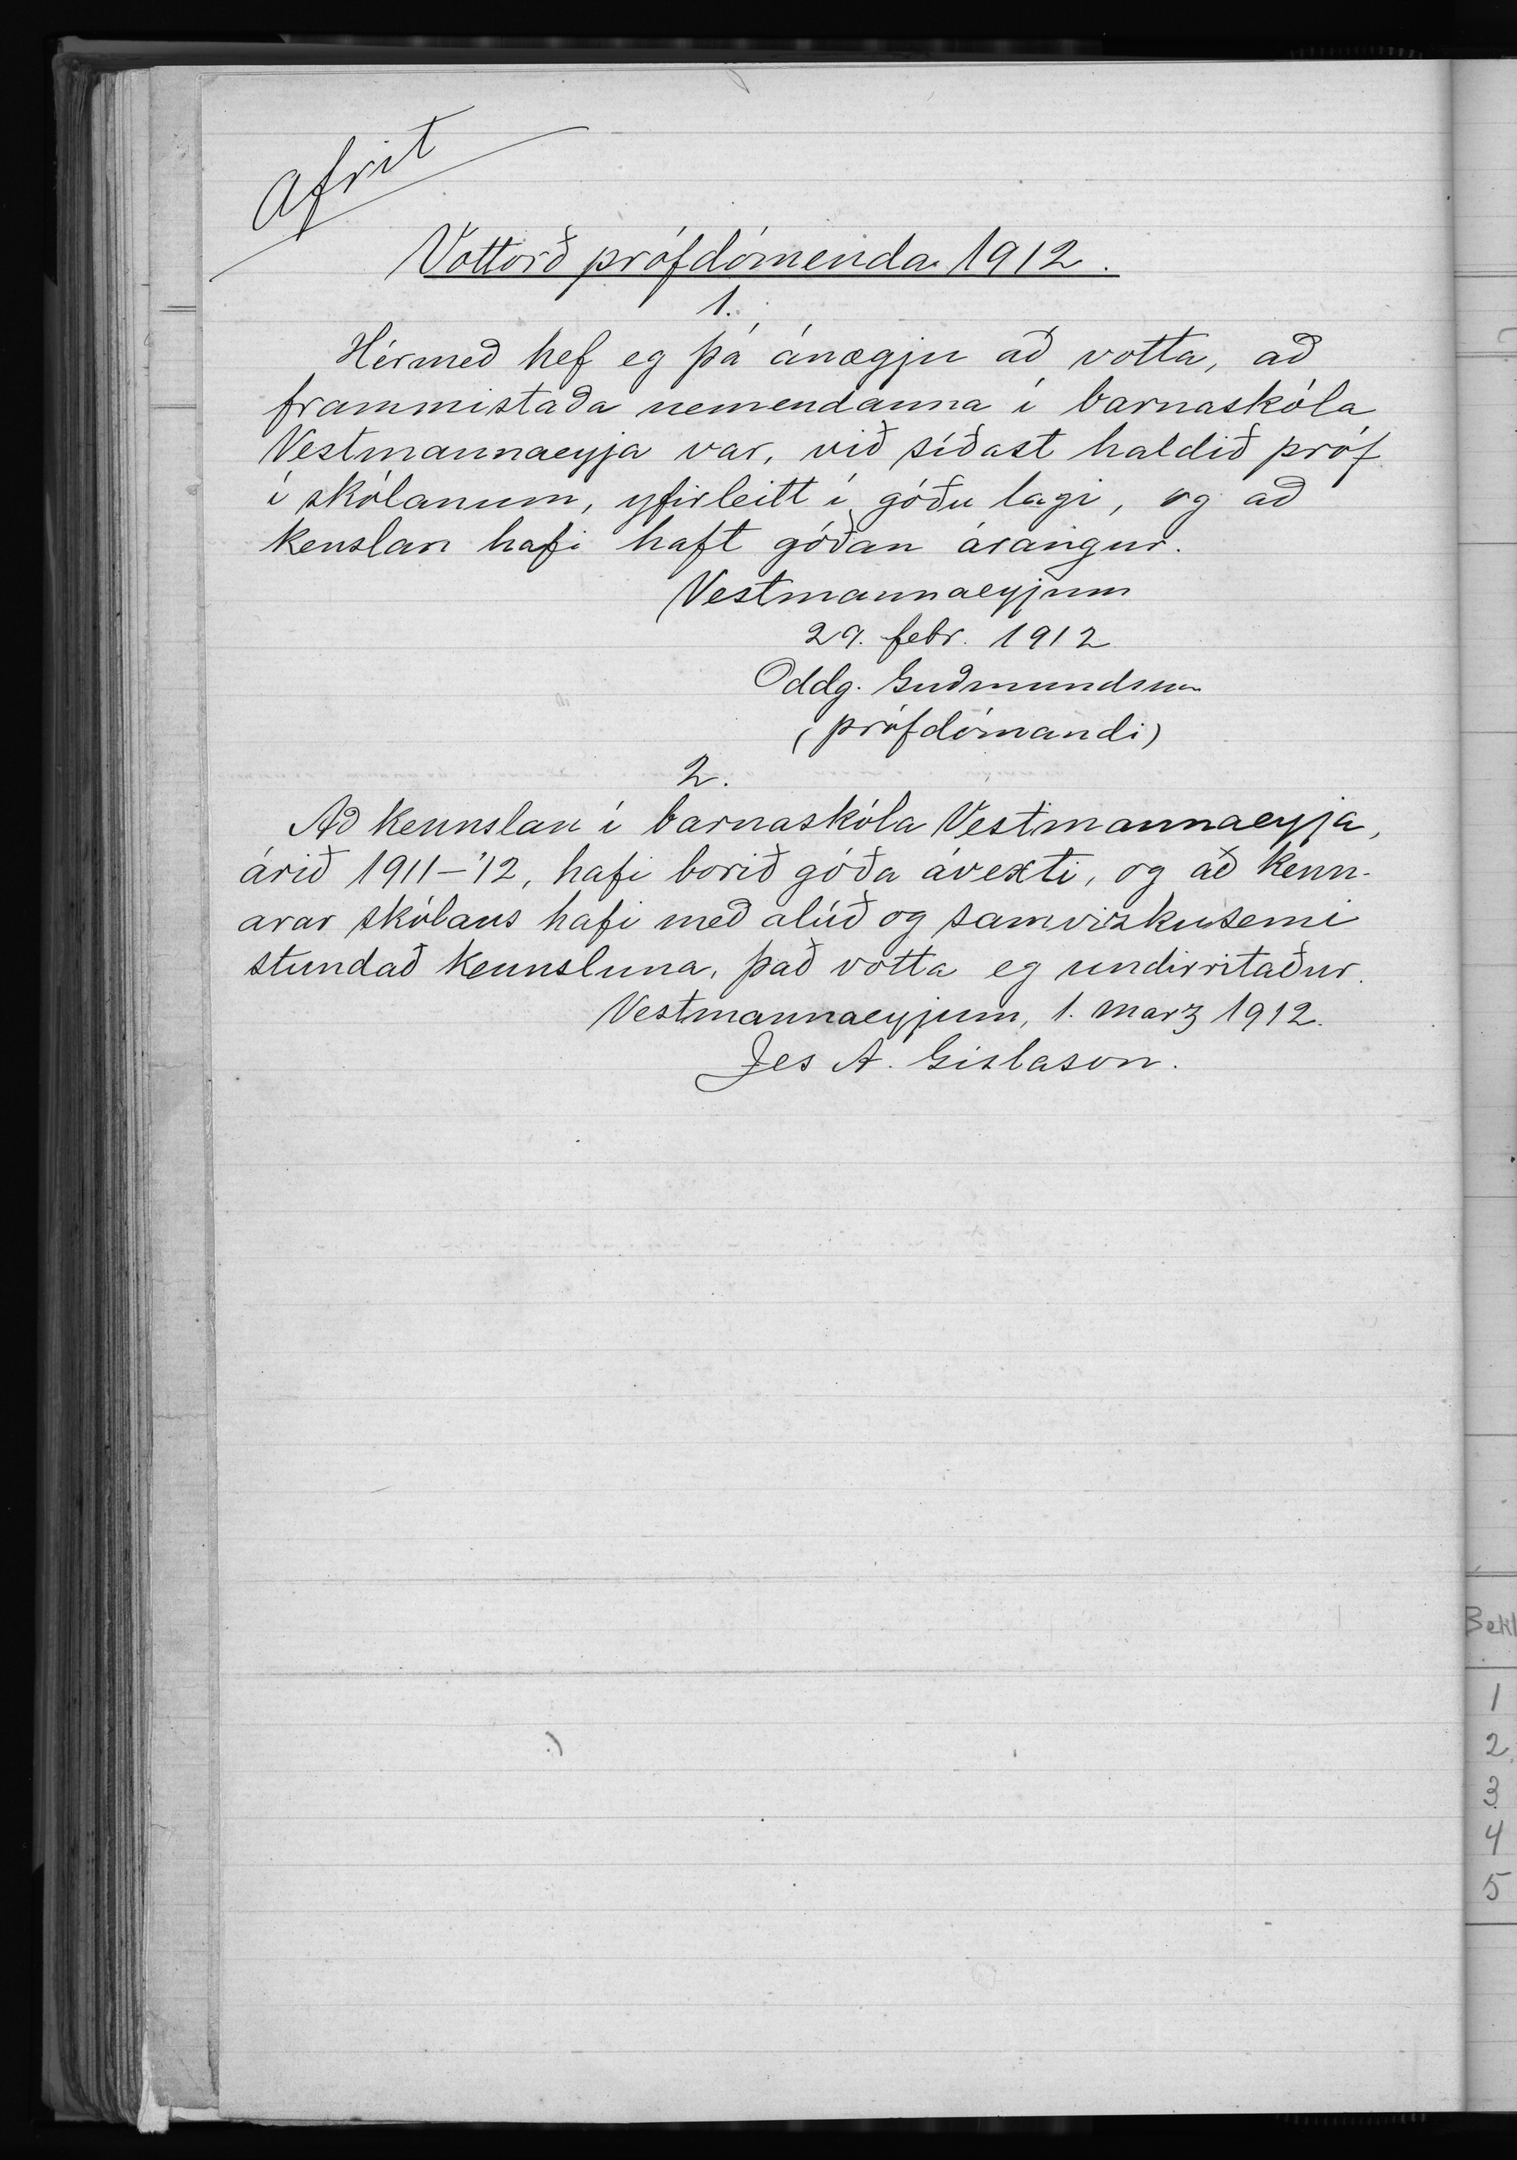 Afrit
Vottorð prófdómenda 1912.
1.
Hérmeð hef eg þá ánægju að votta, að
frammistaða nemendanna í barnaskóla
Vestmannaeyja var, við síðast haldið próf
í skólanum, yfirleitt í góðu lagi, og að
kenslan hafi haft góðan árangur.
Vestmannaeyjum
29. febr. 1912
Oddg. Guðmundsson
(prófdómandi)
2.
Að kennslan í barnaskóla Vestmannaeyja,
árið 1911-'12, hafi borið góða ávexti, og að kenn-
arar skólans hafi með alúð og samvizkusemi
stundað kennsluna, það votta eg undirritaður.
Vestmannaeyjum, 1. marz 1912.
Jes A. Gíslason.
Bekk
1
2
3
4
5